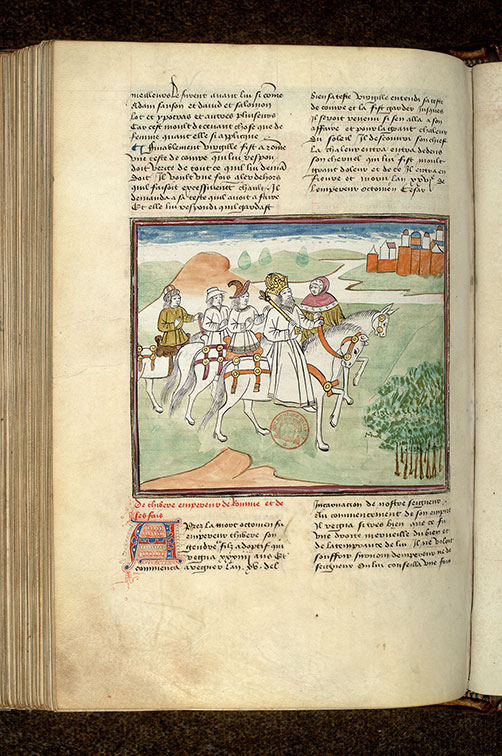 meilleurs se firent avant lui si come
Adam sanson et david et salomon
Lot et ypocras et autres plusieurs
Car cest moult decevant chose que de
femme quant elle si applique
Finablement virgille fist a rome
une teste de couvre qui lui respon
doit verite de tout ce quil lui deman
doit Il voult une fois aler dehors
quil faisoit excessivement chault Il
demanda a sa teste quil avoit a faire
Et elle lui respondi quil gardast
bien sa teste Virgille entendi sa teste
de couvre et la fist garder jusques
Il seroit revenu si sen alla a son
affaire et pour la grant chaleur
du soleil Il descouvri son chief
La chaleur entra entra dedens
son chervel qui lui fist moult
grant doleur et de ce Il entra en
fievre et mouru lan xxv de
lempereur octovien Cesar
De thibere empereur de romme et de
ses fais
Apres la mort octovien fu
empereur thibere son
gendre filz adoptif qui
regna xxiiij ans Et
commenca a regner lan xv del
incarnacion de nostre seigneur
Au commencement de son empire
Il regna si tres bien que ce fu
une droite merveille du bien et
de latemprance de lui Il ne vouloit
souffrir surnom dempereur ne de
seigneur On lui conseilla une fois